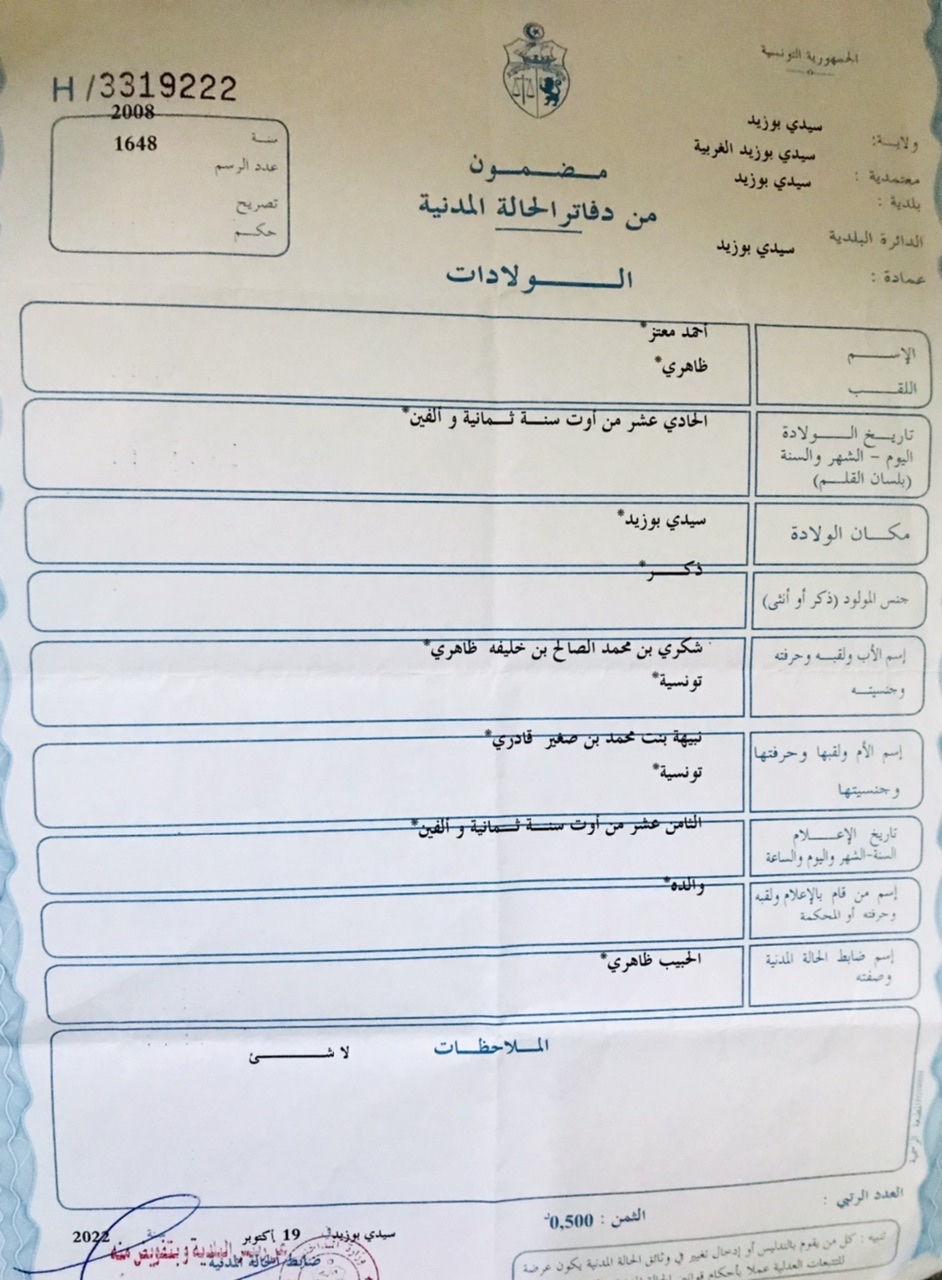 الجمهورية التونسية
H/3319222
ولاية: سيدي بوزيد
معتمدية : سيدي بوزيد الغربية
بلدية : سيدي بوزيد
الدائرة البلدية
عمادة : سيدي بوزيد
سنة 2008
عدد الرسم 1648
تصريح
حكم
مضمون
من دفاتر الحالة المدنية
الولادات
الإسم أحمد معتز*
اللقب ظاهري*
تاريخ الولادة
اليوم - الشهر والسنة
(بلسان القلم)
الحادي عشر من أوت سنة ثمانية و ألفين*
مكان الولادة سيدي بوزيد*
جنس المولود (ذكر أو أنثى) ذكر*
إسم الأب ولقبه وحرفته شكري بن محمد الصالح بن خليفه ظاهري*
وجنسيته تونسية*
إسم الأم ولقبها وحرفتها نبيهة بنت محمد بن صغير قادري*
وجنسيتها تونسية*
تاريخ الإعلام
السنة-الشهر واليوم والساعة
الثامن عشر من أوت سنة ثمانية و ألفين*
إسم من قام بالإعلام ولقبه
وحرفته أو المحكمة
والده*
إسم ضابط الحالة المدنية
وصفته
الحبيب ظاهري*
الملاحظات
لا شئ
العدد الرتبي :
الثمن : 0,500د
سيدي بوزيد في 19 أكتوبر سنة 2022
ضابط الحالة المدنية
البلدية و بتفويض منه
تنبيه : كل من يقوم بالتدليس أو إدخال تغيير في وثائق الحالة المدنية يكون عرضة
للتتبعات العدلية عملا بأحكام